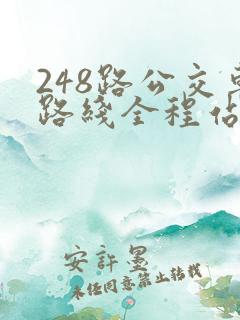 248路公交
路线全程
安许墨
未经同意禁止转载